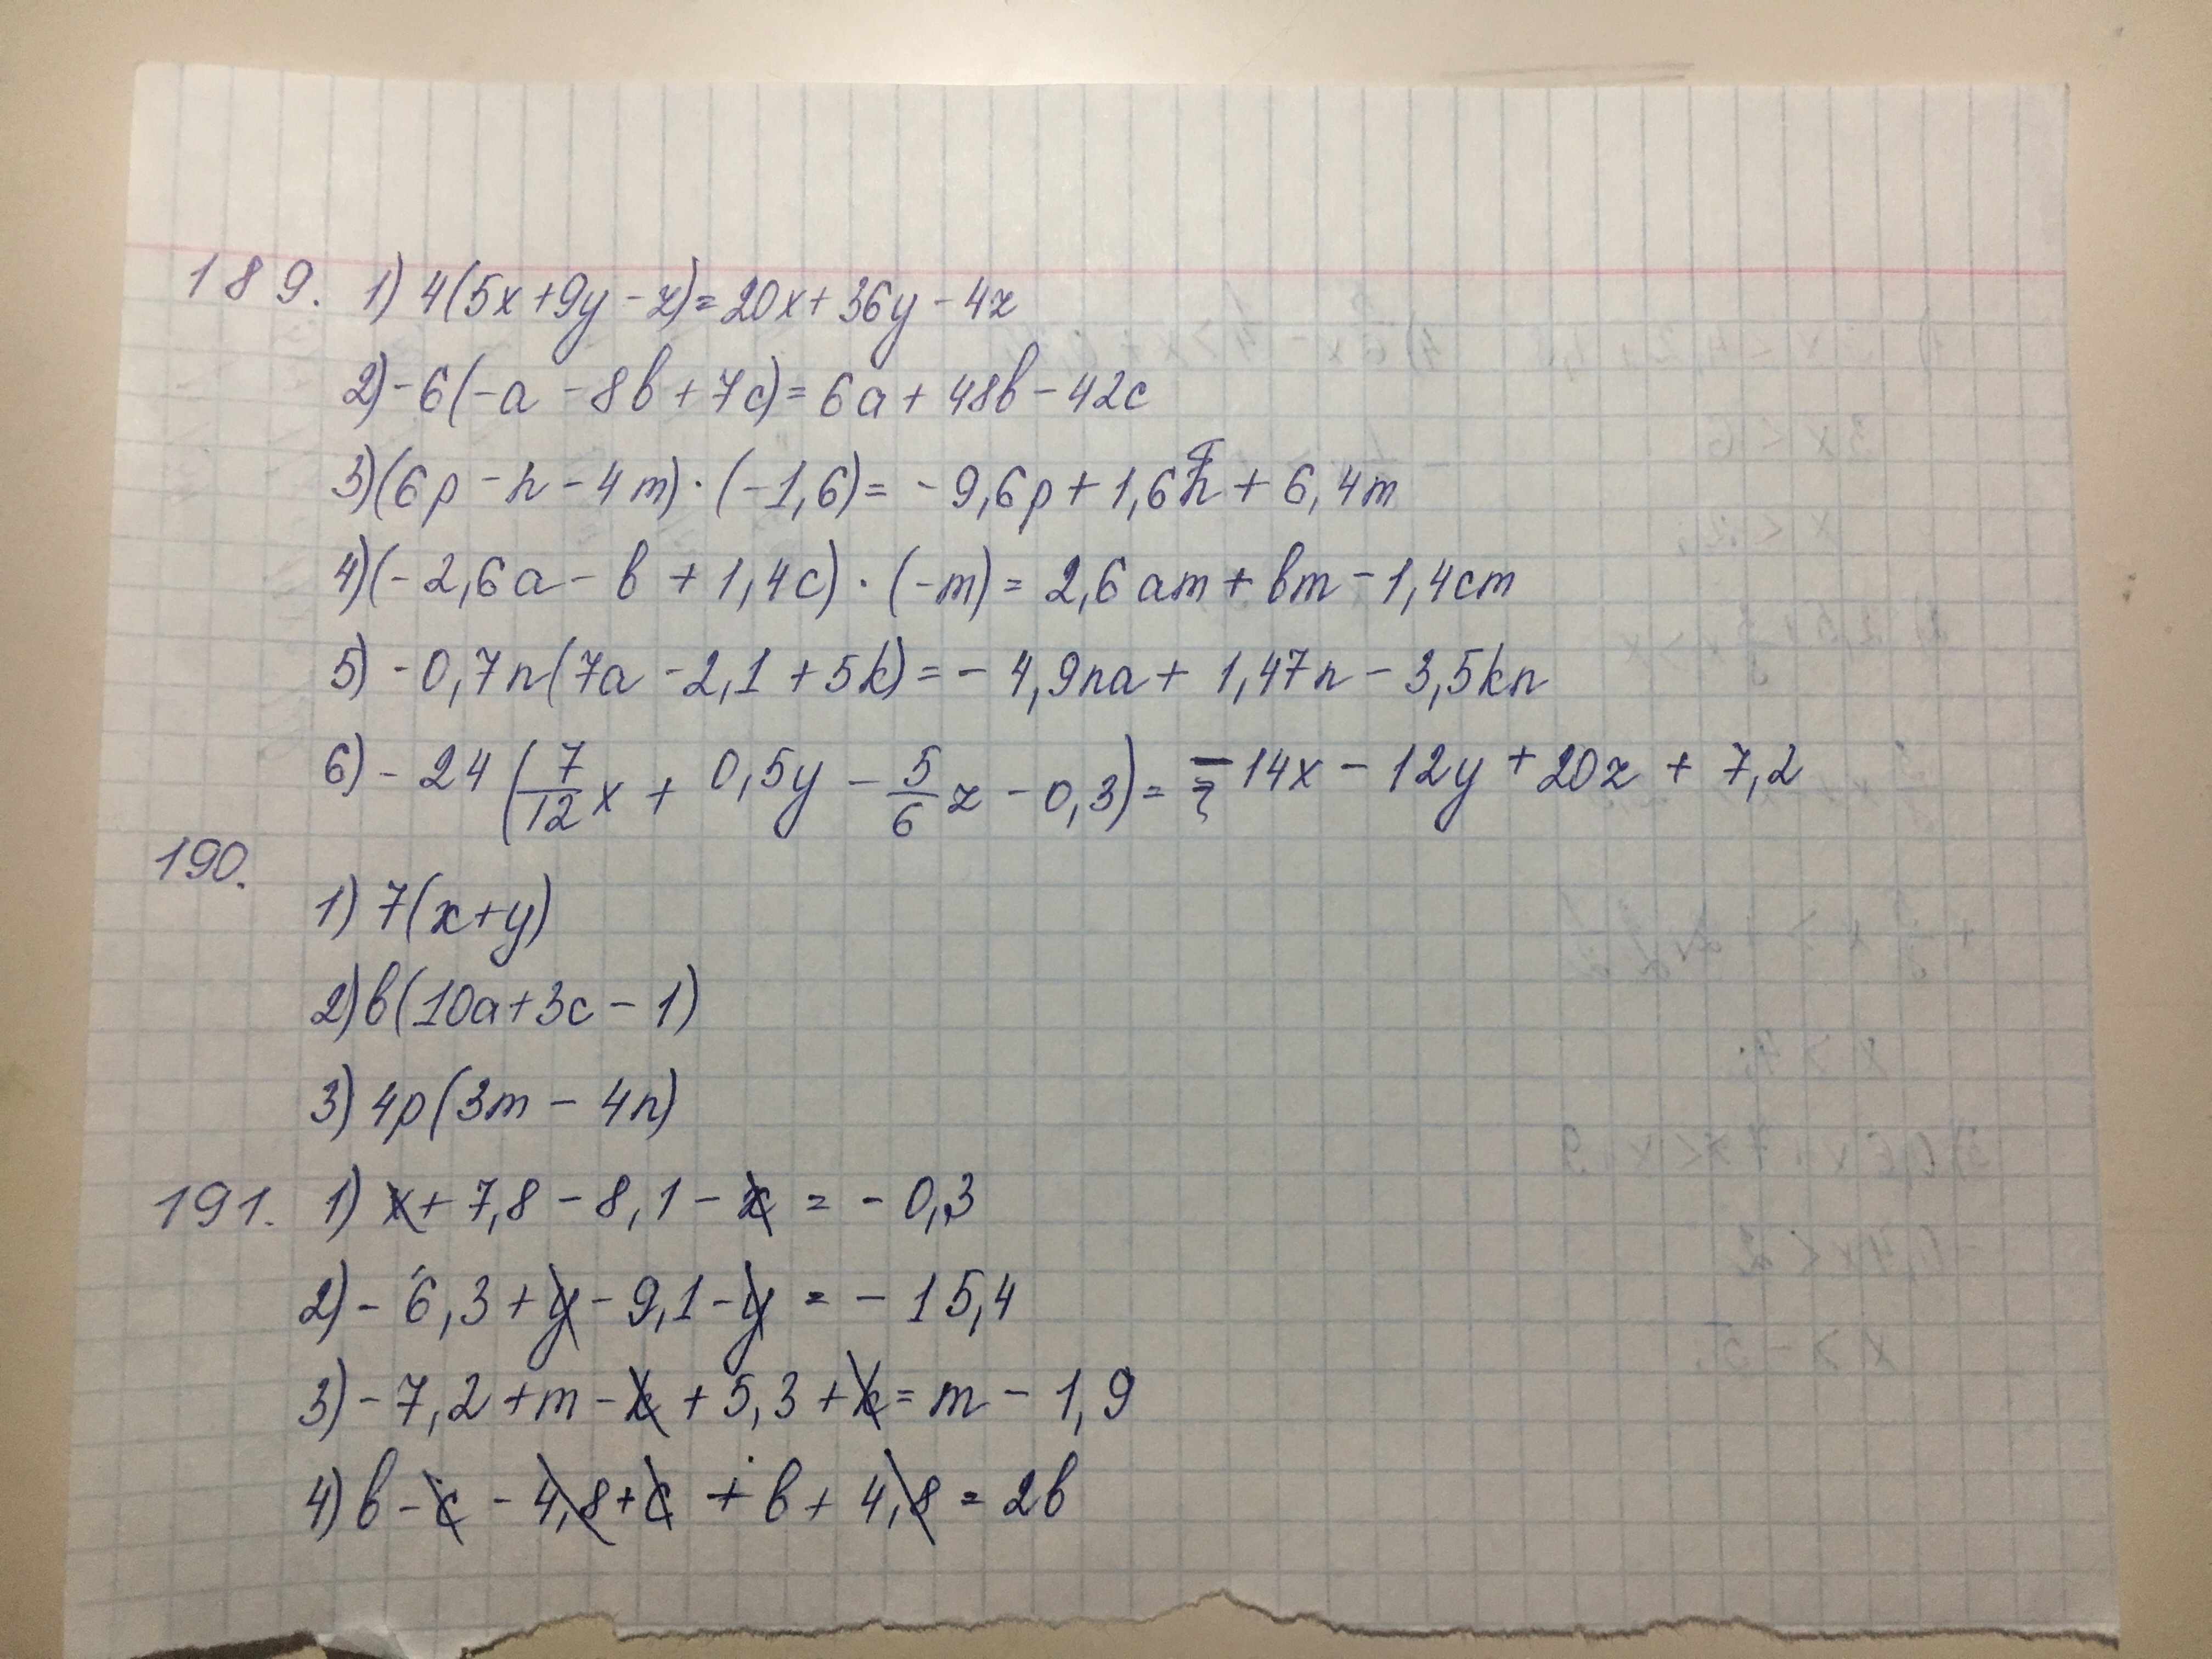 189. 1) 4(5x+9y-z)=20x+36y-4z
2) -6(-a-8b+7c)=6a+48b-42c
3) (6p-n-4m)·(-1,6)= -9,6p+1,6n+6,4m
4) (-2,6a-b+1,4c)·(-m)=2,6am+bm-1,4cm
5) -0,7n(7a-2,1+5k)=-4,9na+1,47n-3,5kn
6) -24(7/12x+0,5y-5/6z-0,3)= -14x-12y+20z+7,2
190.
1) 7(x+y)
2) b(10a+3c-1)
3) 4p(3m-4n)
191. 1) x+7,8-8,1-x=-0,3
2) -6,3+y-9,1-y=-15,4
3) -7,2+m-k+5,3+k=m-1,9
4) b-c-4,8+c+b+4,8=2b